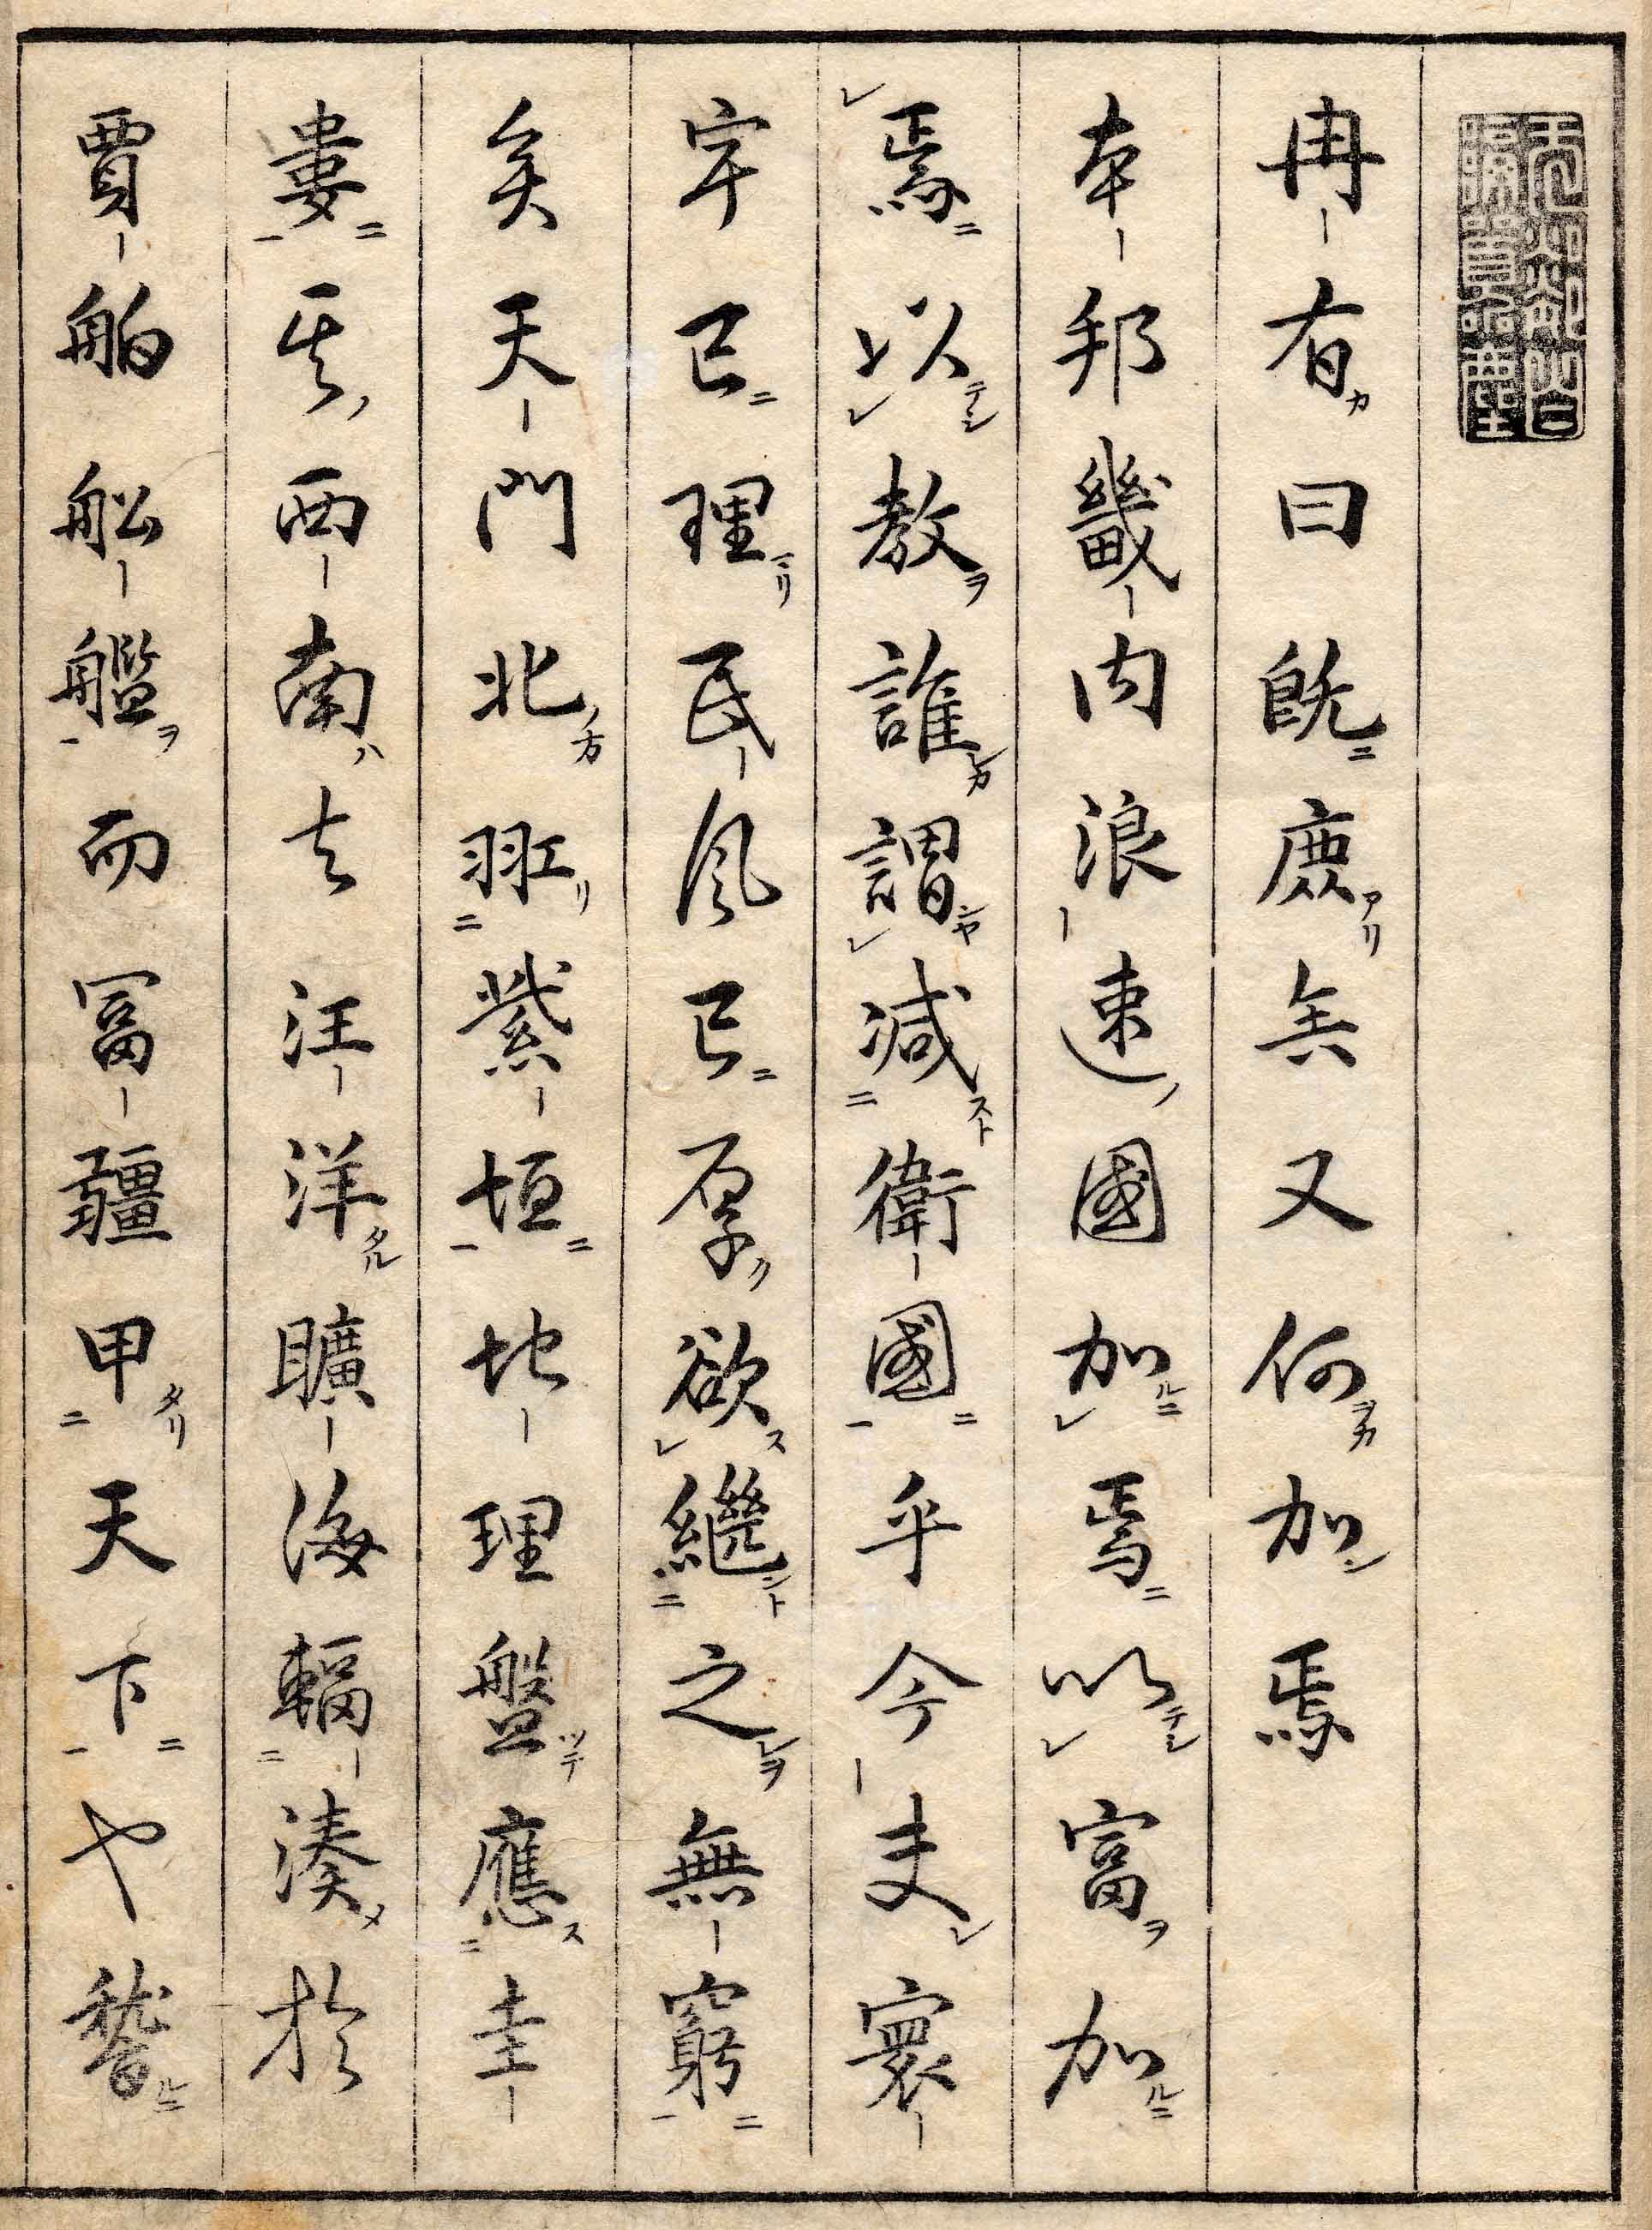 冉有曰既庶矣又何加焉
本邦畿内浪速國加焉以富加
焉以教誰謂減衛國乎今夫寰
宇已理民風已厚欲繼之無窮
矣天門北羾紫垣地理盤應奎
婁其西南夫汪洋曠海輻湊於
賈舶船艦而冨疆甲天下也稽